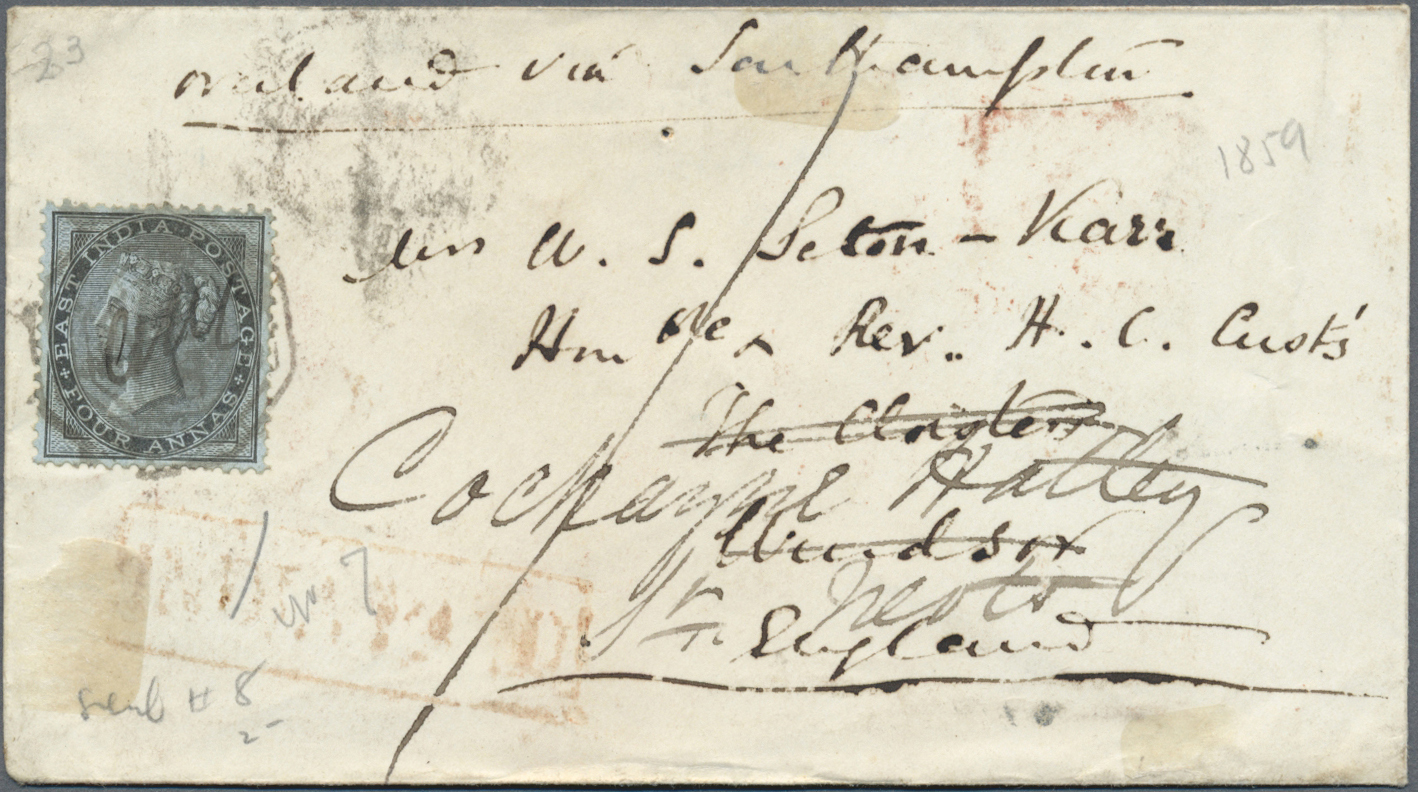 23
overland via Southampton
1859
EAST INDIA POSTAGE
FOUR ANNAS
Mrs W. S. Seton-Karr
Honble & Rev. H. C. Cust's
The Cloisters
Cockayne Hatley
Windsor
St. Neots
England
7
8